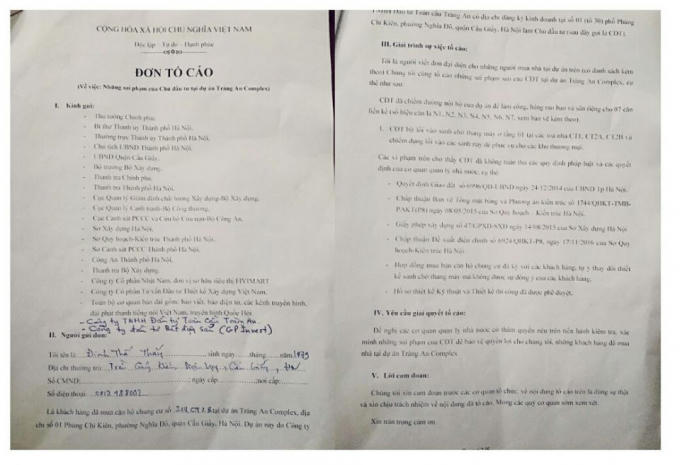 CỘNG HÒA XÃ HỘI CHỦ NGHĨA VIỆT NAM
Độc lập - Tự do - Hạnh phúc
ĐƠN TỐ CÁO
(Về việc: Những sai phạm của Chủ đầu tư tại dự án Tràng An Complex)
I. Kính gửi:
- Thủ tướng Chính phủ.
- Bí thư Thành ủy Thành phố Hà Nội.
- Thường trực Thành ủy Thành phố Hà Nội.
- Chủ tịch UBND Thành phố Hà Nội.
- UBND Quận Cầu Giấy.
- Bộ trưởng Bộ Xây dựng.
- Thanh tra Chính phủ.
- Thanh tra Thành phố Hà Nội.
- Cục Quản lý Giám định chất lượng Xây dựng-Bộ Xây dựng.
- Cục Quản lý Cạnh tranh-Bộ Công thương.
- Cục Cảnh sát PCCC và Cứu hộ Cứu nạn-Bộ Công An.
- Sở Xây dựng Hà Nội.
- Sở Quy hoạch-Kiến trúc Thành phố Hà Nội.
- Sở Cảnh sát PCCC Thành phố Hà Nội.
- Công An Thành phố Hà Nội.
- Thanh tra Bộ Xây dựng.
- Công ty Cổ phần Nhất Nam, đơn vị sở hữu siêu thị FIVIMART
- Công ty Cổ phần Tư vấn Đầu tư Thiết kế Xây dựng Việt Nam.
- Toàn bộ cơ quan báo đài gồm: báo viết, báo điện tử, các kênh truyền hình,
đài phát thanh tiếng nói Việt Nam, truyền hình Quốc Hội
- Công ty TNHH Đầu tư Toàn Cầu Tràng An.
- Công ty đầu tư Bất động sản (GP Invest)
II. Người gửi đơn:
Tôi tên là: Đinh Thế sinh ngày tháng năm 1979
Địa chỉ thường trú: Cầu Giấy, HN
Số CMND: ngày cấp nơi cấp:
Số điện thoại: 0912488002
Là khách hàng đã mua căn hộ chung cư số tại dự án Tràng An Complex, địa
chỉ số 01 Phùng Chí Kiên, phường Nghĩa Đô, quận Cầu Giấy, Hà Nội. Dự án này do Công ty
TNHH Đầu tư Toàn cầu Tràng An có địa chỉ đăng ký kinh doanh tại số 01 (tổ 30) phố Phùng
Chí Kiên, phường Nghĩa Đô, quận Cầu Giấy, Hà Nội làm Chủ đầu tư (sau đây gọi là CĐT).
III. Giải trình sự việc tố cáo:
Tôi là người viết đơn đại diện cho những người mua nhà tại dự án trên (có danh sách kèm
theo) Chúng tôi tố cáo những sai phạm sau của CĐT tại dự án Tràng An Complex, cụ
thể như sau:
CĐT đã chiếm đường nội bộ của dự án để làm cổng, hàng rào bao và sân riêng cho 07 căn
liền kề (có ký hiệu căn là N1, N2, N3, N4, N5, N6, N7, xem bản vẽ kèm theo).
1. CĐT bịt lối vào sảnh chờ thang máy ở tầng 01 tại các toà nhà CT1, CT2A, CT2B và
chiếm dụng lối vào các sảnh này để phục vụ cho các khu thương mại.
Các vi phạm trên cho thấy CĐT đã không tuân thủ các quy định pháp luật và các quyết
định của cơ quan quản lý nhà nước, cụ thể:
- Quyết định Giao đất số 6996/QĐ-UBND ngày 24/12/2014 của UBND Tp Hà Nội.
- Chấp thuận Bản vẽ Tổng mặt bằng và Phương án kiến trúc số 1744/QHKT-TMB-
PAKT(P8) ngày 08/05/2015 của Sở Quy hoạch - Kiến trúc Hà Nội.
- Giấy phép xây dựng số 47/GPXD-SXD ngày 14/08/2015 của Sở Xây dựng Hà Nội
- Chấp thuận Đề xuất điều chỉnh số 6924/QHKT-P8, ngày 17/11/2016 của Sở Quy
hoạch-Kiến trúc Hà Nội.
- Hợp đồng mua bán căn hộ chung cư đã ký với các khách hàng, tự ý thay đổi thiết
kế sảnh chờ thang máy mà không được sự đồng ý của các khách hàng.
- Hồ sơ thiết kế Kỹ thuật và Thiết kế thi công đã được phê duyệt.
IV. Yêu cầu giải quyết tố cáo:
Đề nghị các cơ quan quản lý nhà nước có thẩm quyền nêu trên tiến hành kiểm tra, xác
minh những sai phạm của CĐT để bảo vệ quyền lợi cho chúng tôi, những khách hàng đã mua
nhà tại dự án Tràng An Complex
V. Lời cam đoan:
Chúng tôi xin cam đoan trước các cơ quan tổ chức về nội dung tố cáo trên là đúng sự thật
và xin chịu trách nhiệm về nội dung đã tố cáo. Mong các quý cơ quan sớm xem xét.
Xin trân trọng cảm ơn.